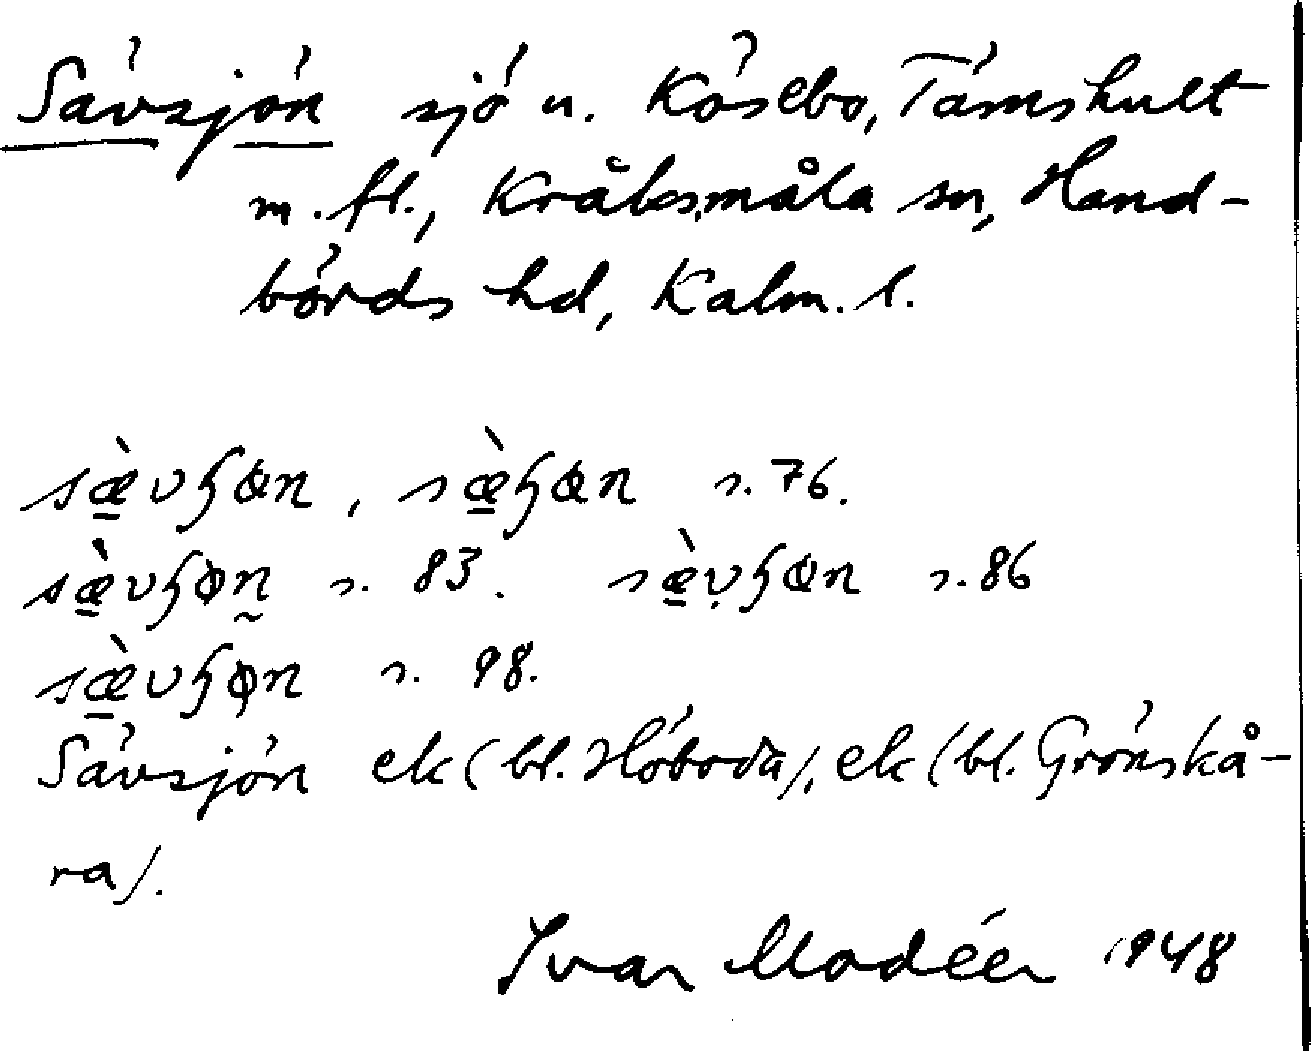 Sävsjön sjö u. Kösebo, Tämshult
m. fl., Kråksmåla sn, Hand-
börds hd, Kalm. l.
sæ̠̀vɧɵn, sæ̠̀ɧɵn s. 76.
sæ̠̀vɧɵn̰ s. 83. sæ̠̀ṿɧɵn s. 86
sæ̠̀vɧɵn s. 98.
Sävsjön ek (bl. Höboda), ek (bl. Grönskå-
ra).
Ivar Modéer 1948